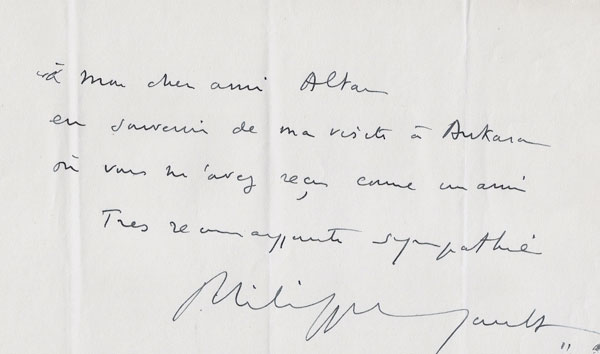 à mon cher ami Altan
en souvenir de ma visite à Ankara
où vous m'avez reçu comme un ami
Très reconnaissante sympathie
Philippe